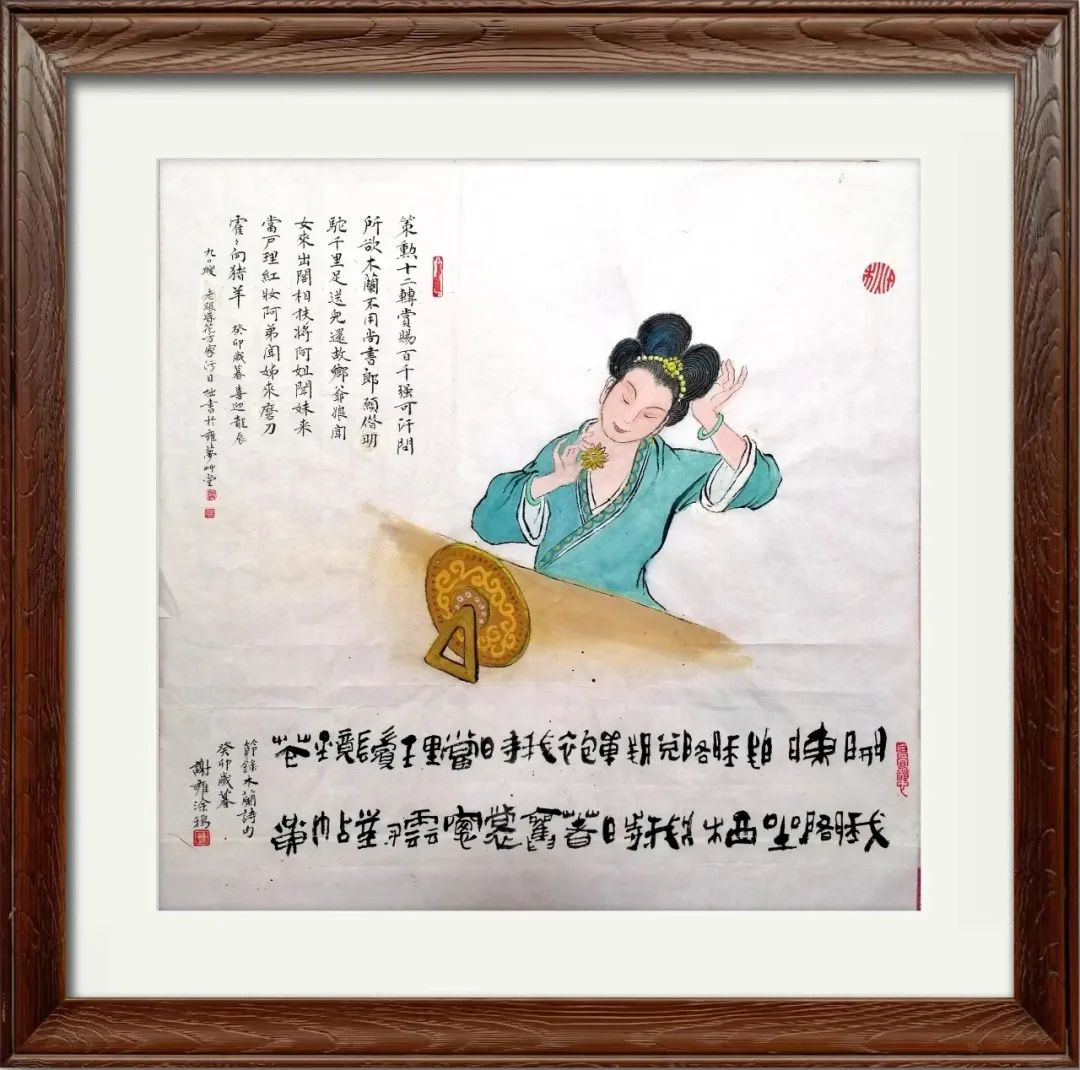 策勲十二轉賞賜百千强可汗問
所欲木蘭不用尚書郎願借明
駝千里足送兒還故鄉爺娘聞
女來出閣相扶將阿姐聞妹來
當戶理紅妝阿弟聞姊來磨刀
霍〻向猪羊 癸卯歲暮喜迎龍辰
老眼昏花方家污目拙書於雍夢艸堂
開我
東閣
門坐
我西
閣床
脫我
戰時
袍著
我舊
時裳
當窗
理雲
鬢對
鏡帖
花黃
節錄木蘭詩句
癸卯歲暮
謝雍涂鴉